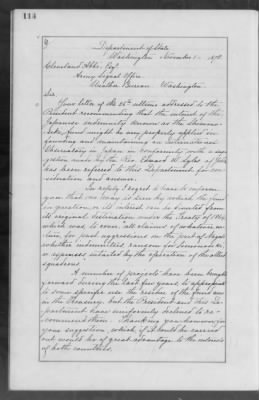 114
Department of State
Washington November 1st 1878.
Cleveland Abbe, Esq.
Army Signal Office
Weather Bureau Washington
Sir
Your letter of the 25th ultimo addressed to the
President recommending that the interest of the
Japanese indemnity known as the Shimono-
seki fund might be any properly applied in
founding and maintaining an International
Observatory in Japan in conformity with a sug-
gestion made by the Rev. Edward W. Syle of
has been referred to this Department for con-
sideration and answer.
In reply I regret to have to inform
you that no way is seen by which the fund
in question or its interest can be diverted from
its original destination under the Treaty of 1864
which was to cover all claims of whatever na-
ture for past aggressions on the part of Nagato
whether indemnities ransom for Simonoseki
or expenses entailed by the operation of the allied
squadrons
A number of projects have been brought
forward during the last few years, to appropriate
to some specific use the residue of the fund now
in the Treasury, but the President and this De-
partment have uniformly declined to re-
commend them. Thanking you however for
your suggestion, which if it could be carried
out would be of great advantage to the interests
of both countries.